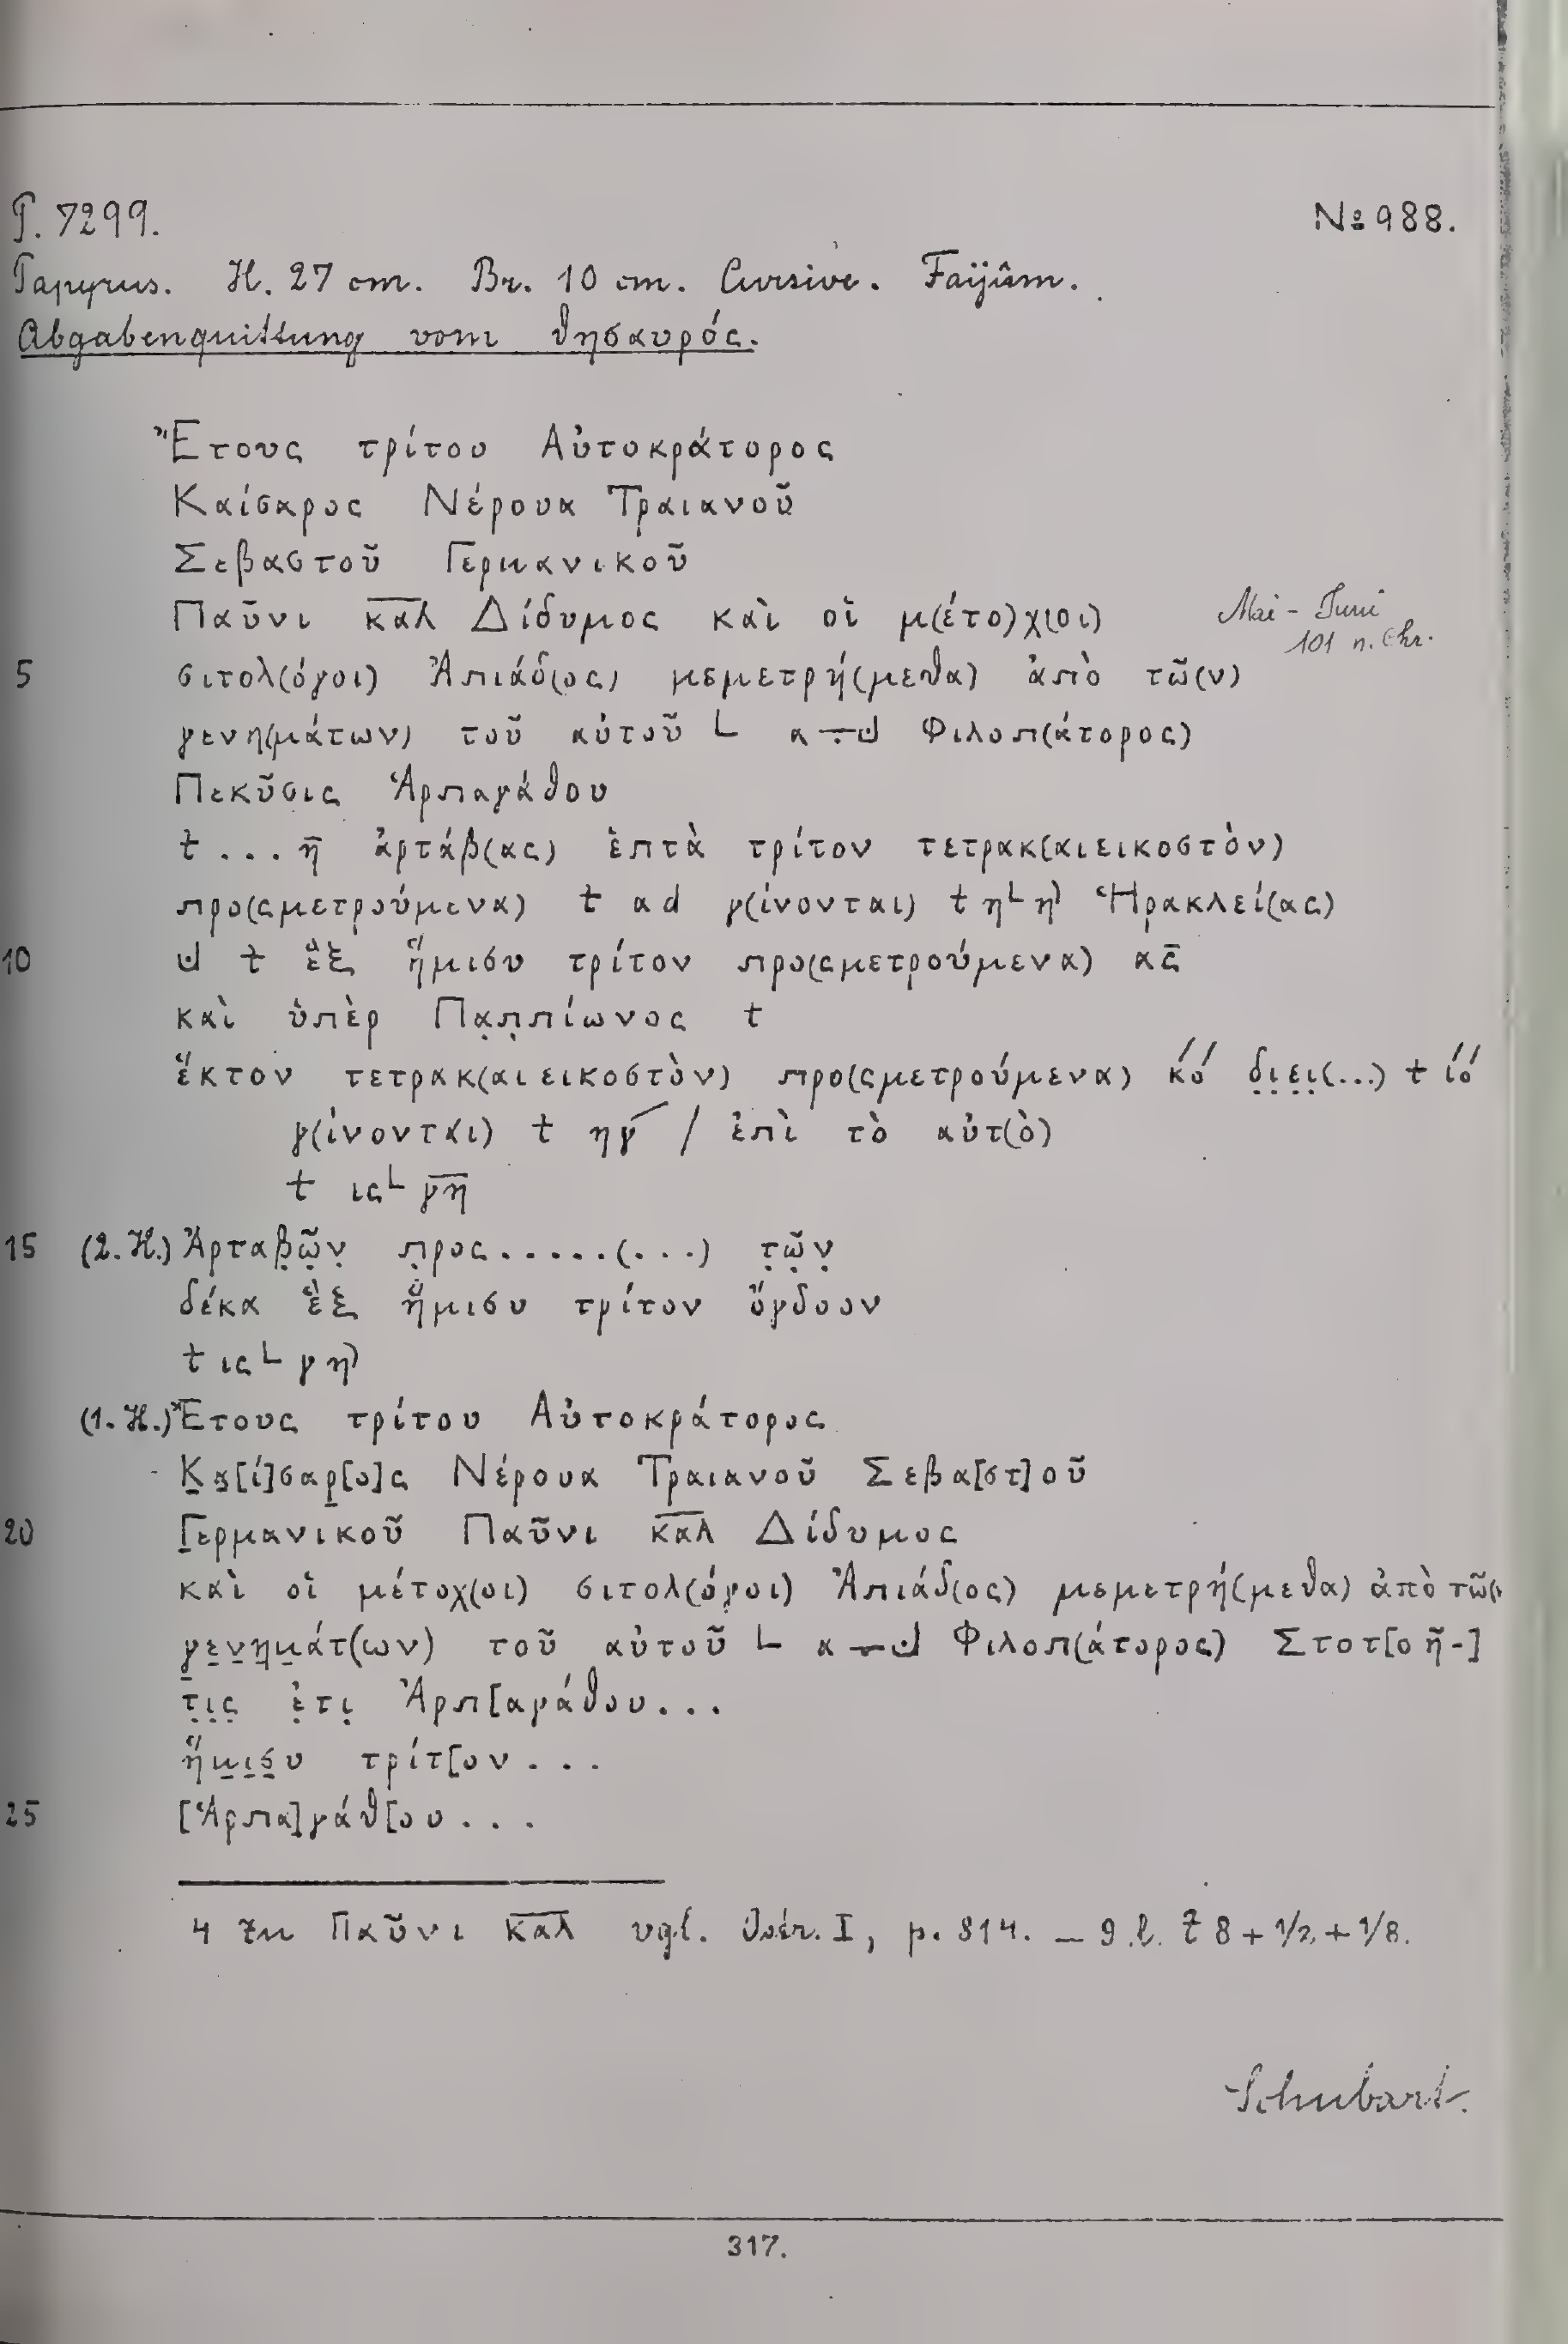 P. 7299. № 988.
Papyrus. H. 27 cm. Br. 10 cm. Cursive. Faijûm.
Abgabenquittung vom θησαυρός.
Ἔτους τρίτου Αὐτοκράτορος
Καίσαρος Νέρουα Τραιανοῦ
Σεβαστοῦ Γερμανικοῦ
Παῦνι κ̅α̅λ̅ Δίδυμος καὶ οἱ μ(έτο)χ(οι)
Mai - Juni
101 n. Chr.
5 σιτολ(όγοι) Ἀπιάδ(ος) μεμετρή(μεθα) ἀπὸ τῶ(ν)
γενη(μάτων) τοῦ αὐτοῦ └ α Φιλοπ(άτορος)
Πεκῦσις Ἁρπαγάθου
t . . . η̅ ἀρτάβ(ας) ἑπτὰ τρίτον τετρακ(αιεικοστὸν)
προ(ςμετρούμενα) t α d γ(ίνονται) t η └ η) Ἡρακλεί(ας)
10 t ἓξ ἥμισυ τρίτον προ(ςμετρούμενα) ας̅
καὶ ὑπὲρ Πα̣π̣πίωνος t
ἕκτον τετρακ(αιεικοστὸν) προ(ςμετρούμενα) κ´ό´ δ̣ι̣ε̣ι̣(...) t ί´ό´
γ(ίνονται) t ηγ / ἐπὶ τὸ αὐτ(ὸ)
t ις └ γ̅η̅
15 (2. H.) Ἀρταβ̣ῶ̣ν̣ π̣ρος . . . . . (. . .) τ̣ῶ̣ν̣
δέκα ἓξ ἥμισυ τρίτον ὄγδοον
t ις └ γ η)
(1. H.) Ἔτους τρίτου Αὐτοκράτορος
Κα̣[ί]σαρ̣[ο]ς Νέρουα Τραιανοῦ Σεβα[στ]οῦ
20 Γ̣ερμανικοῦ Παῦνι κ̅α̅λ̅ Δίδυμος
καὶ οἱ μέτοχ(οι) σιτολ(όγοι) Ἀπιάδ(ος) μεμετρή(μεθα) ἀπὸ τῶ(ν
γ̣ε̣ν̣η̣μ̣άτ(ων) τοῦ αὐτοῦ └ α Φιλοπ(άτορος) Στοτ[οῆ-]
τ̣ι̣ς̣ ἐ̣τι̣ Ἁρπ[αγάθου . . .
ἥμ̣ι̣σ̣υ τρίτ[ον . . .
25 [Ἁρπα]γάθ[ου . . .
4 zu Παῦνι κ̅α̅λ̅ vgl. Ostr. I, p. 814. — 9 l. t 8 + 1/2 + 1/8.
Schubart.
317.